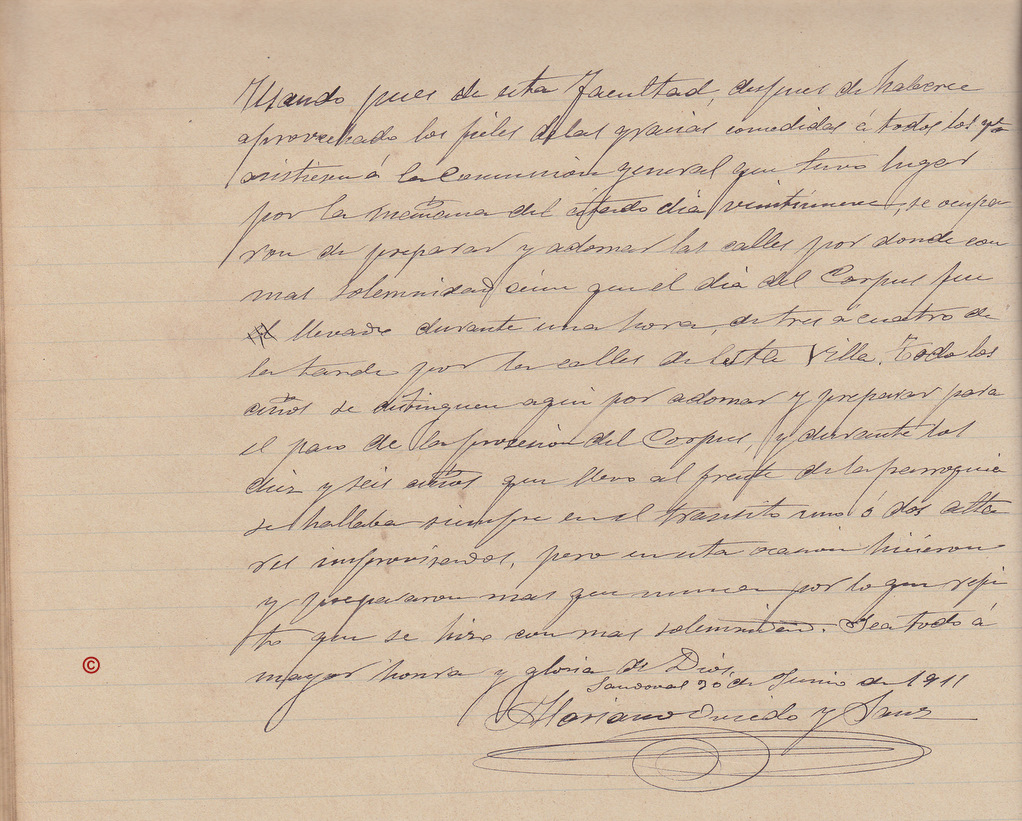 Usando pues de esta facultad, despues de haberse
aprovechado los fieles de las gracias concedidas á todos los qe
asistiesen á la Comunion general que tuvo lugar
por la mañana del citado dia veintinueve, se ocupa
ron de preparar y adornar las calles por donde con
mas solemnidad aun que el dia del Corpus fue
llevado durante una hora, de tres a cuatro de
la tarde por las calles de esta Villa. Todos los
años se distinguen aqui por adornar y preparar para
el paso de la procesion del Corpus, y durante los
diez y seis años que llevo al frente de la parroquia
se hallaba siempre en el transito uno ó dos alta
res improvisados, pero en esta ocasion hicieron
y prepararon mas que nunca por lo que repi
to que se hizo con mas solemnidad. Sea todo á
mayor honra y gloria de Dios.
Sandoval 30 de Junio de 1911
Mariano Oviedo y Sanz
©